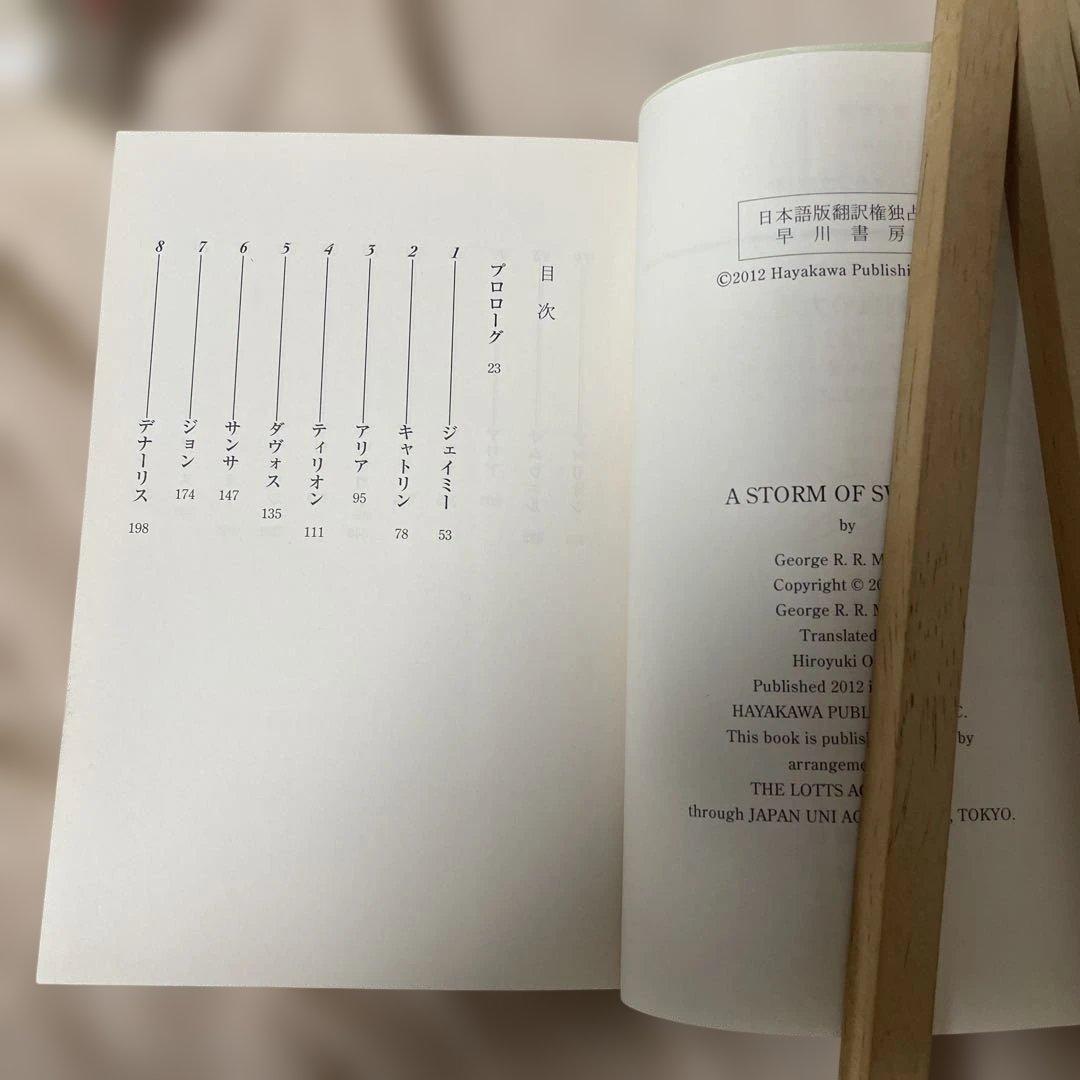 日本語版翻訳権独占
早川書房
©2012 Hayakawa
A STORM OF
by
George R. R.
Copyright ©
George R. R.
Translated
Hiroyuki
Published 2012
HAYAKAWA
This book is by
THE LOTTS
through JAPAN UNI , TOKYO.
目次
プロローグ 23
1 ジェイミー 53
2 キャトリン 78
3 アリア 95
4 ティリオン 111
5 ダヴォス 135
6 サンサ 147
7 ジョン 174
8 デナーリス 198